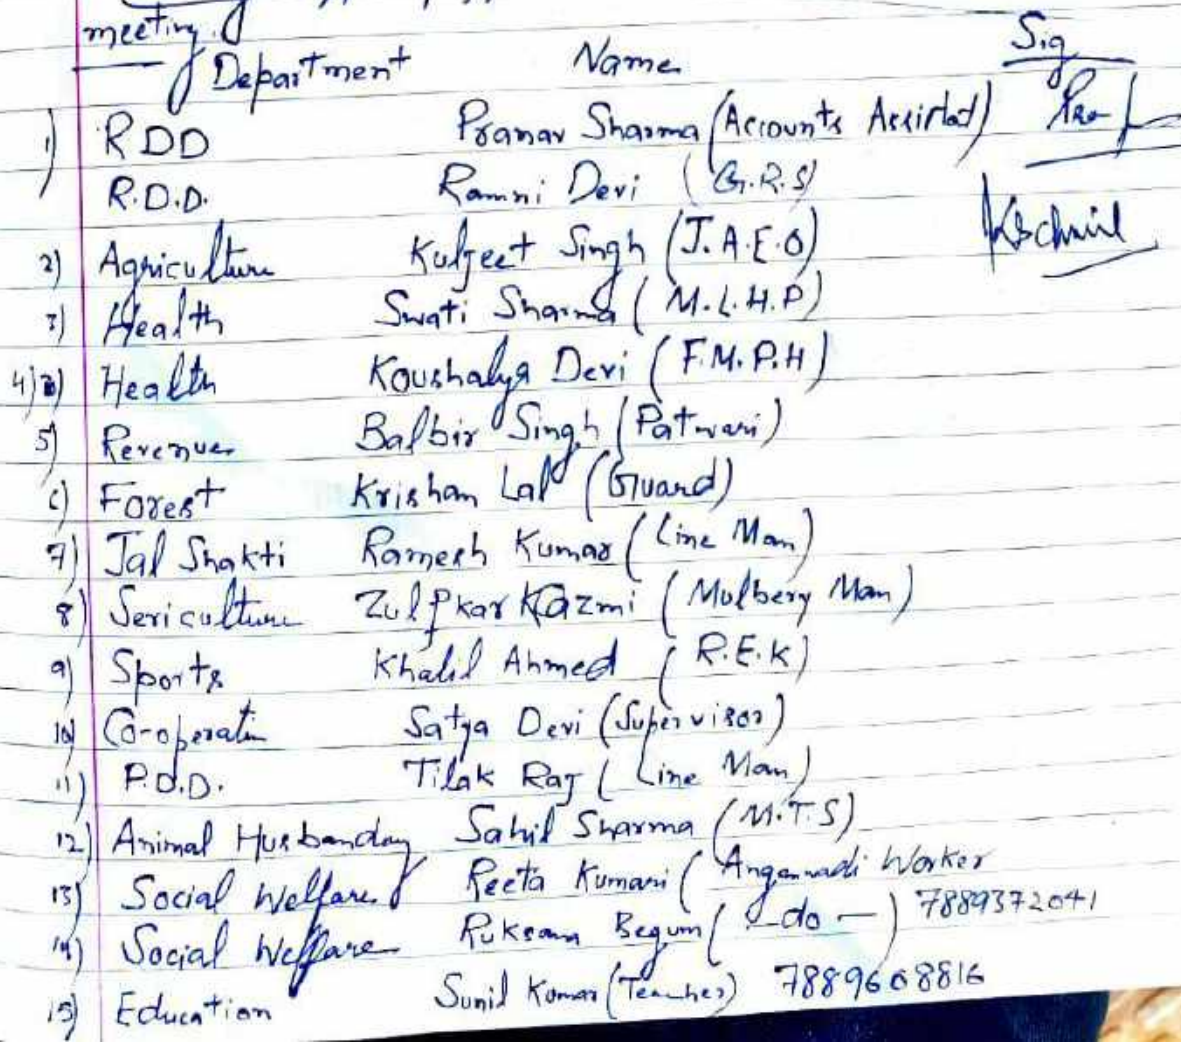 meeting.
Department Name Sig
1) RDD Pranav Sharma (Accounts Assistat)
R.D.D. Ramni Devi (G.R.S)
2) Agriculture Kuljeet Singh (J.A.E.O)
3) Health Swati Sharma (M.L.H.P)
4) Health Koushalya Devi (F.M.P.H)
5) Revenue Balbir Singh (Patwari)
6) Forest Krishan Lal (Guard)
7) Jal Shakti Ramesh Kumar (Line Man)
8) Sericulture Zulfkar Kazmi (Mulbery Man)
9) Sports Khalil Ahmed (R.E.K)
10) Co-operatin Satya Devi (Supervisor)
11) P.D.D. Tilak Raj (Line Man)
12) Animal Husbanday Sahil Sharma (M.T.S)
13) Social Welfare Reeta Kumari (Anganwadi Worker
14) Social Welfare Ruksana Begum (-do-) 7889372041
15) Education Sunil Kumar (Teacher) 7889608816